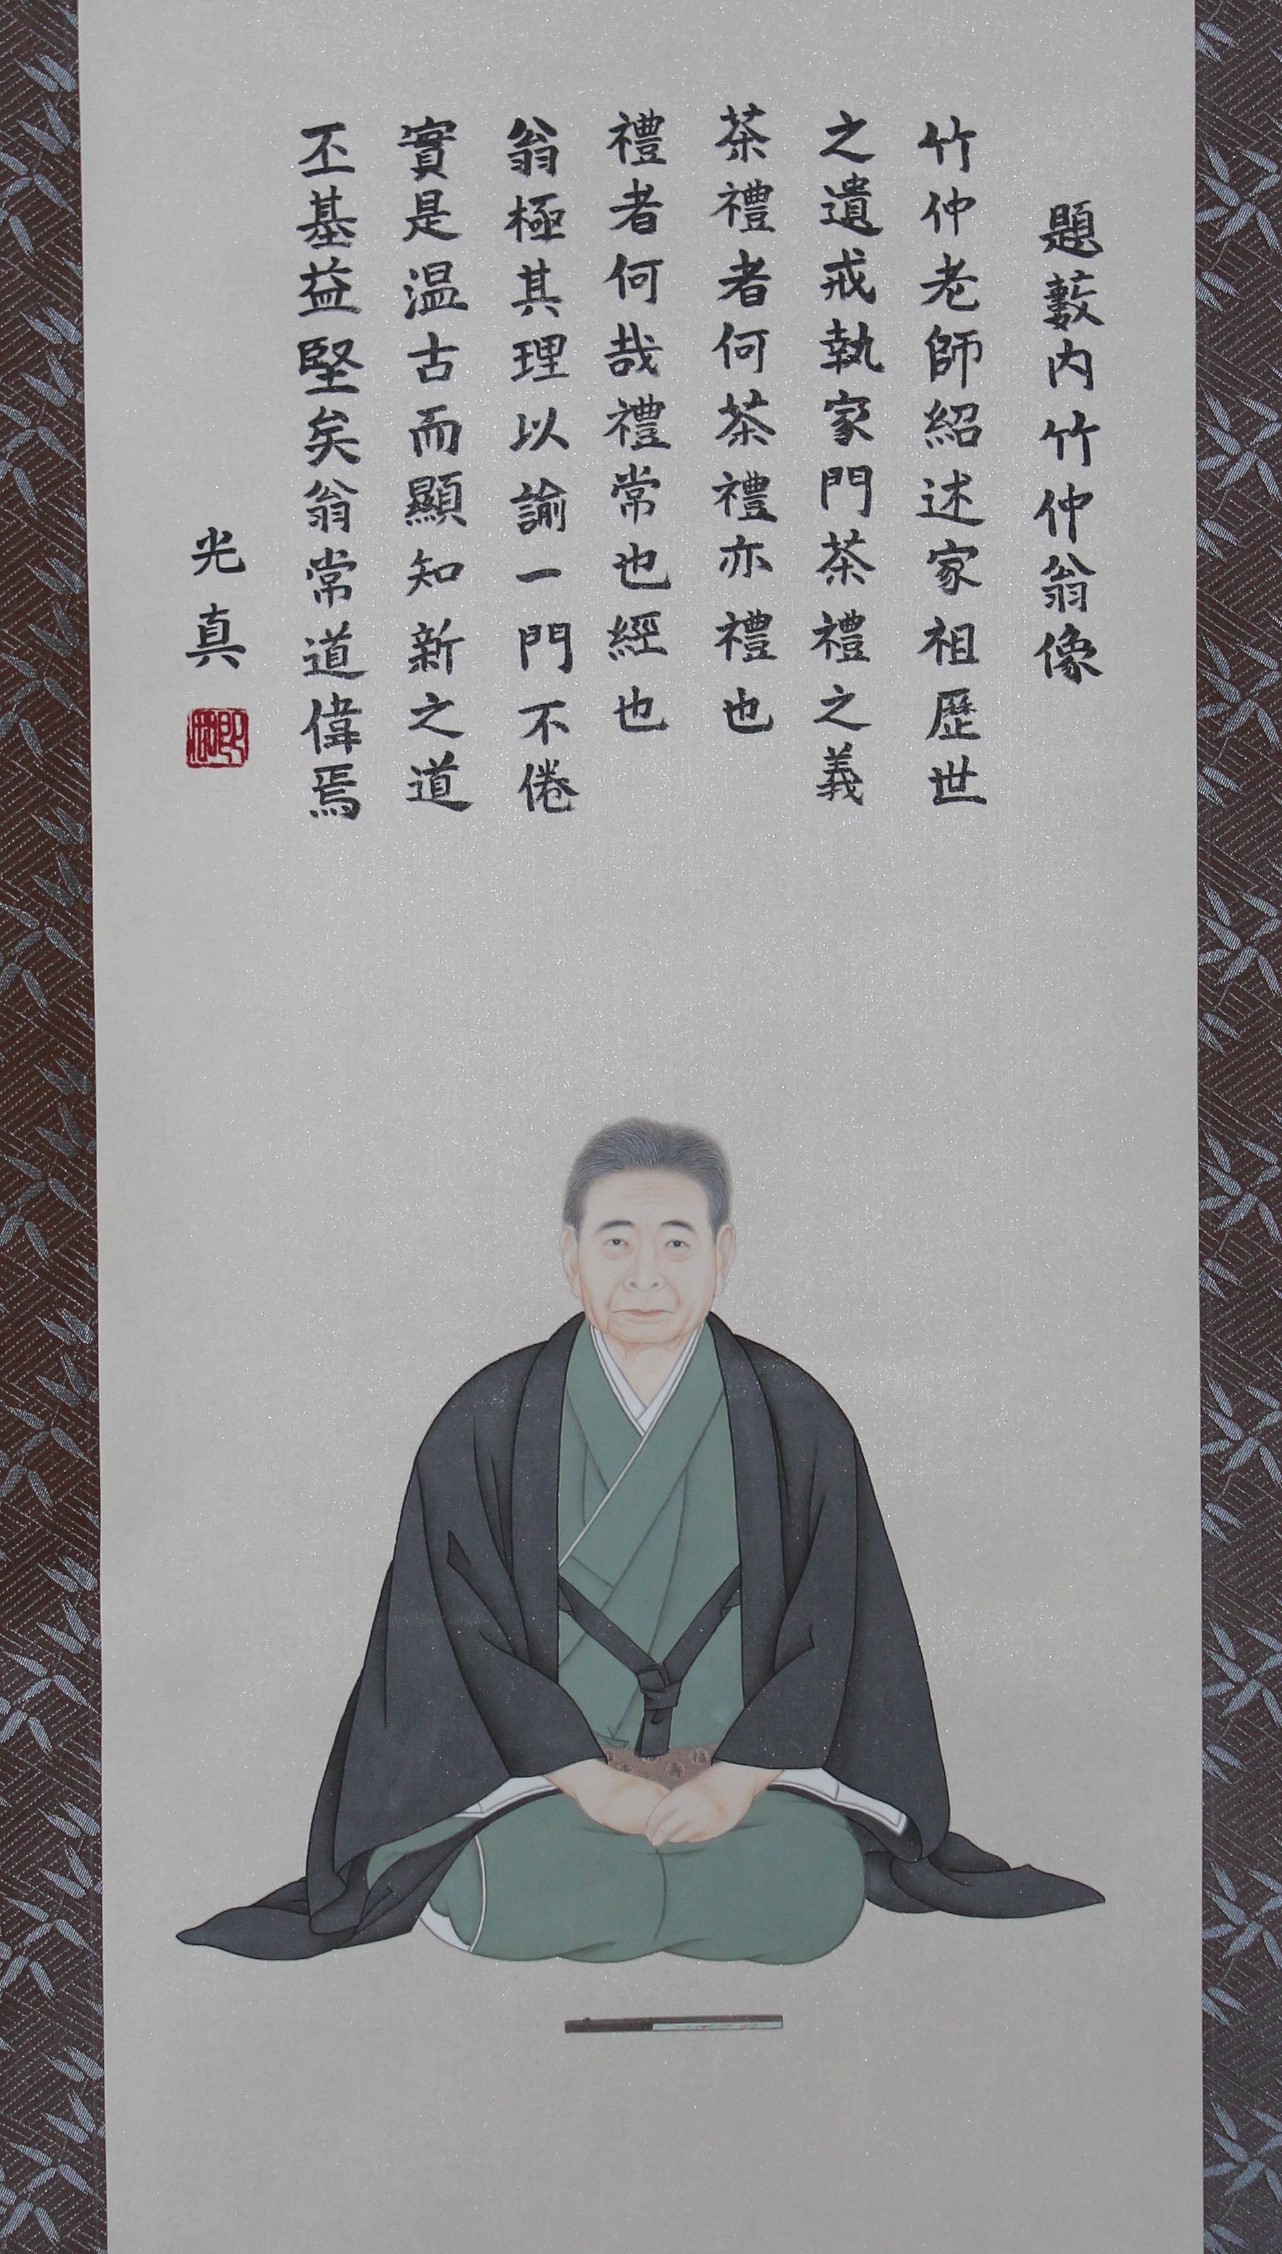 題藪内竹仲翁像
竹仲老師紹述家祖歴世
之遺戒執家門茶禮之義
茶禮者何茶禮亦禮也
禮者何哉禮常也經也
翁極其理以諭一門不倦
實是温古而顯知新之道
丕基益堅矣翁常道偉焉
光真